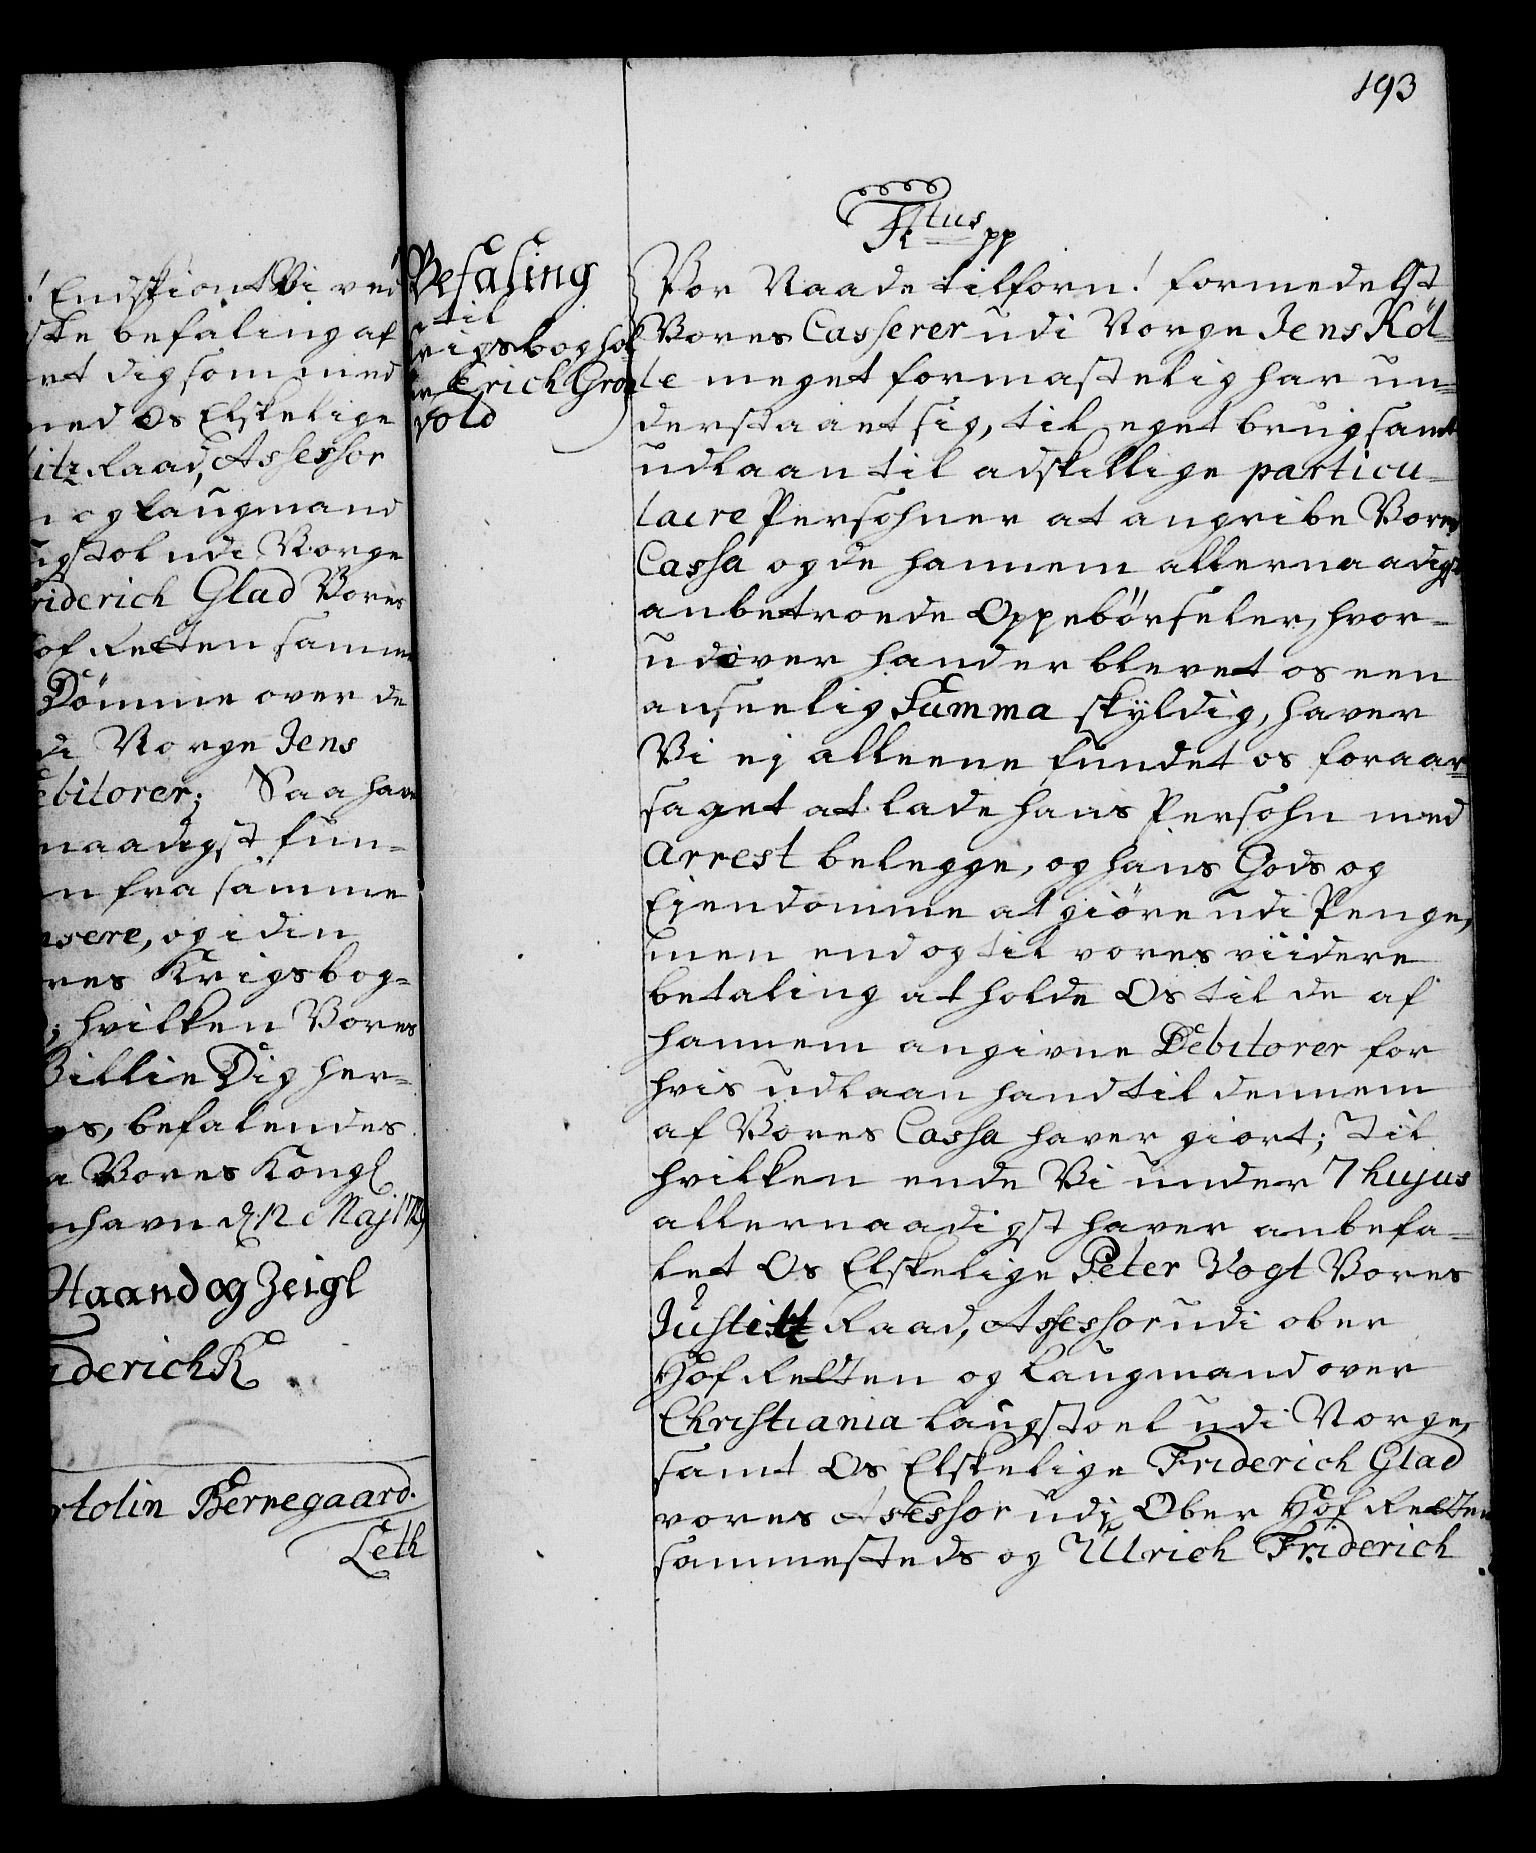 ! Endskiønt Vi ved
ske befaling af
et dig som med
med Os Elskelige
titz Raad, Assessor
og Laugmand
gstol udi Norge
riderich Glad Vores
of Retten samme
Dömme over de
di Norge Jens
ebitorer; Saa have
naadigst fun-
n fra samme
sere, og i din
res Krigsbog-
; hvilken Vores
Billie Dig her-
es, befalendes
a Vores Kongl
nhavn d. 12 Maj 1719
Haand og Zeigl
riderich R
rtolin Bernegaard.
Leth
193
Befaling
til
rigsboghol
er Erich Gron
vold
Fr tus pp
Vor Naade tilforn! formedelst
Vores Casserer udi Norge Jens Köl-
le meget formastelig har un-
derstaaet sig, til eget brug samt
udlaan til adskillige particu-
laire Persohner at angribe Vores
Cassa og de hannem allernaadigst
anbetroede Oppebörseler, hvor-
udover hand er blevet os een
anseelig Summa skyldig, haver
Vi ej alleene fundet os foraar-
saget at lade hans Persohn med
Arrest belegge, og hans Gods og
Ejendomme at giöre udi Penge,
men end og til vores viidere
betaling at holde Os til de af
hannem angivne Debitorer for
hvis udlaan hand til dennem
af Vores Cassa haver giort; Til
hvilken ende Vi under 7 hujus
allernaadigst haver anbefa-
let Os Elskelige Peter Vogt Vores
Justitz Raad, Assessor udi ober
Hof Retten og Laugmand over
Christiania Laugstoel udi Norge,
samt Os Elskelige Friderich Glad
vores Assessor udi Ober Hof Retten
sammesteds og Ulrich Friderich